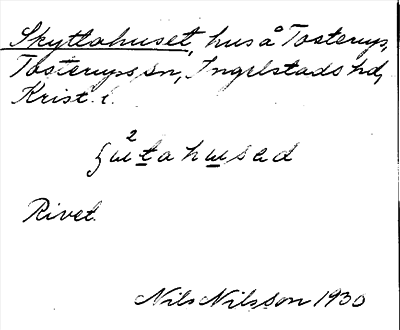 Skyttahuset, hus å Tosterup,
Tosterups sn, Ingelstads hd,
Krist. l.
Rivet.
Nils Nilsson 1930